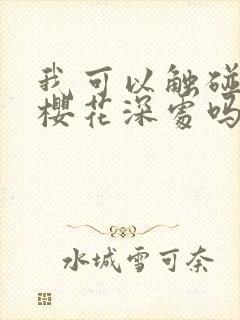 我可以触碰
樱花深处吗
水城雪可奈